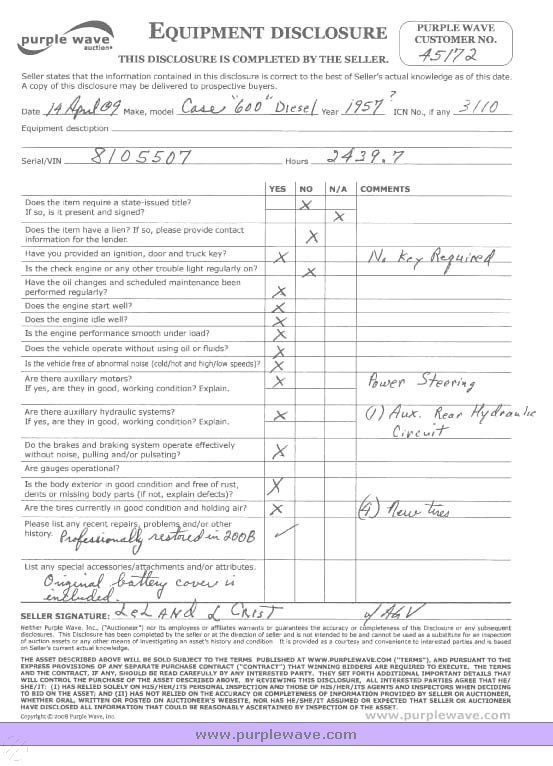 purple wave
auction®
EQUIPMENT DISCLOSURE
THIS DISCLOSURE IS COMPLETED BY THE SELLER.
PURPLE WAVE
CUSTOMER NO.
45172
Seller states that the information contained in this disclosure is correct to the best of Seller's actual knowledge as of this date.
A copy of this disclosure may be delivered to prospective buyers.
Date 14 April 09 Make, model Case "600" Diesel Year 1957? ICN No., if any 3110
Equipment desctiption
Serial/VIN 8105507 Hours 2439.7
YES NO N/A COMMENTS
Does the item require a state-issued title? X
If so, is it present and signed? X
Does the item have a lien? If so, please provide contact
information for the lender. X
Have you provided an ignition, door and truck key? X No Key Required
Is the check engine or any other trouble light regularly on? X
Have the oil changes and scheduled maintenance been
performed regularly? X
Does the engine start well? X
Does the engine idle well? X
Is the engine performance smooth under load? X
Does the vehicle operate without using oil or fluids? X
Is the vehicle free of abnormal noise (cold/hot and high/low speeds)? X
Are there auxiliary motors? X Power Steering
If yes, are they in good, working condition? Explain.
Are there auxiliary hydraulic systems? X (1) Aux. Rear Hydraulic
If yes, are they in good, working condition? Explain. Circuit
Do the brakes and braking system operate effectively
without noise, pulling and/or pulsating? X
Are gauges operational?
Is the body exterior in good condition and free of rust,
dents or missing body parts (if not, explain defects)? X
Are the tires currently in good condition and holding air? X (4) New tires
Please list any recent repairs, problems and/or other
history. Professionally restored in 2008 ✓
List any special accessories/attachments and/or attributes.
Original battery cover is
included.
SELLER SIGNATURE: LeLAND L CRIST y/AGV
Neither Purple Wave, Inc. ("Auctioneer") nor its employees or affiliates warrants or guarantees the accuracy or completeness of this Disclosure or any subsequent
disclosures. This Disclosure has been completed by the seller or at the direction of seller and is not intended to be and cannot be used as a substitute for an inspection
of auction assets or any other means of investigating an asset's history and condition. It is provided as a courtesy and convenience to interested parties and is based
on Seller's current actual knowledge.
THE ASSET DESCRIBED ABOVE WILL BE SOLD SUBJECT TO THE TERMS PUBLISHED AT WWW.PURPLEWAVE.COM ("TERMS"), AND PURSUANT TO THE
EXPRESS PROVISIONS OF ANY SEPARATE PURCHASE CONTRACT ("CONTRACT") THAT WINNING BIDDERS ARE REQUIRED TO EXECUTE. THE TERMS
AND THE CONTRACT, IF ANY, SHOULD BE READ CAREFULLY BY ANY INTERESTED PARTY. THEY SET FORTH ADDITIONAL IMPORTANT DETAILS THAT
WILL CONTROL THE PURCHASE OF THE ASSET DESCRIBED ABOVE. BY REVIEWING THIS DISCLOSURE, ALL INTERESTED PARTIES AGREE THAT HE/
SHE/IT: (I) HAS RELIED SOLELY ON HIS/HER/ITS PERSONAL INSPECTION AND THOSE OF HIS/HER/ITS AGENTS AND INSPECTORS WHEN DECIDING
TO BID ON THE ASSET; AND (II) HAS NOT RELIED ON THE ACCURACY OR COMPLETENESS OF INFORMATION PROVIDED BY SELLER OR AUCTIONEER,
WHETHER ORAL, WRITTEN OR POSTED ON AUCTIONEER'S WEBSITE, NOR HAS HE/SHE/IT ASSUMED OR EXPECTED THAT SELLER OR AUCTIONEER
HAVE DISCLOSED ALL INFORMATION THAT COULD BE REASONABLY ASCERTAINED BY INSPECTION OF THE ASSET.
Copyright © 2008 Purple Wave, Inc. www.purplewave.com
www.purplewave.com